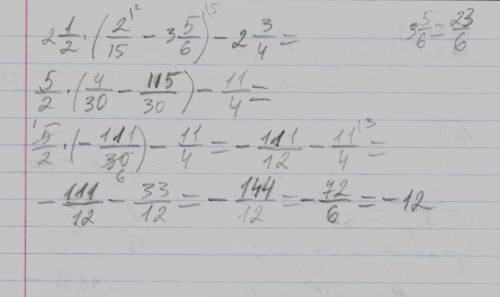 2 1/2 · (2/15 − 3 5/6) − 2 3/4 =    3 5/6 = 23/6
5/2 · (4/30 − 115/30) − 11/4 =
5/2 · (−111/30) − 11/4 = −111/12 − 11/4 =
−111/12 − 33/12 = −144/12 = −72/6 = −12